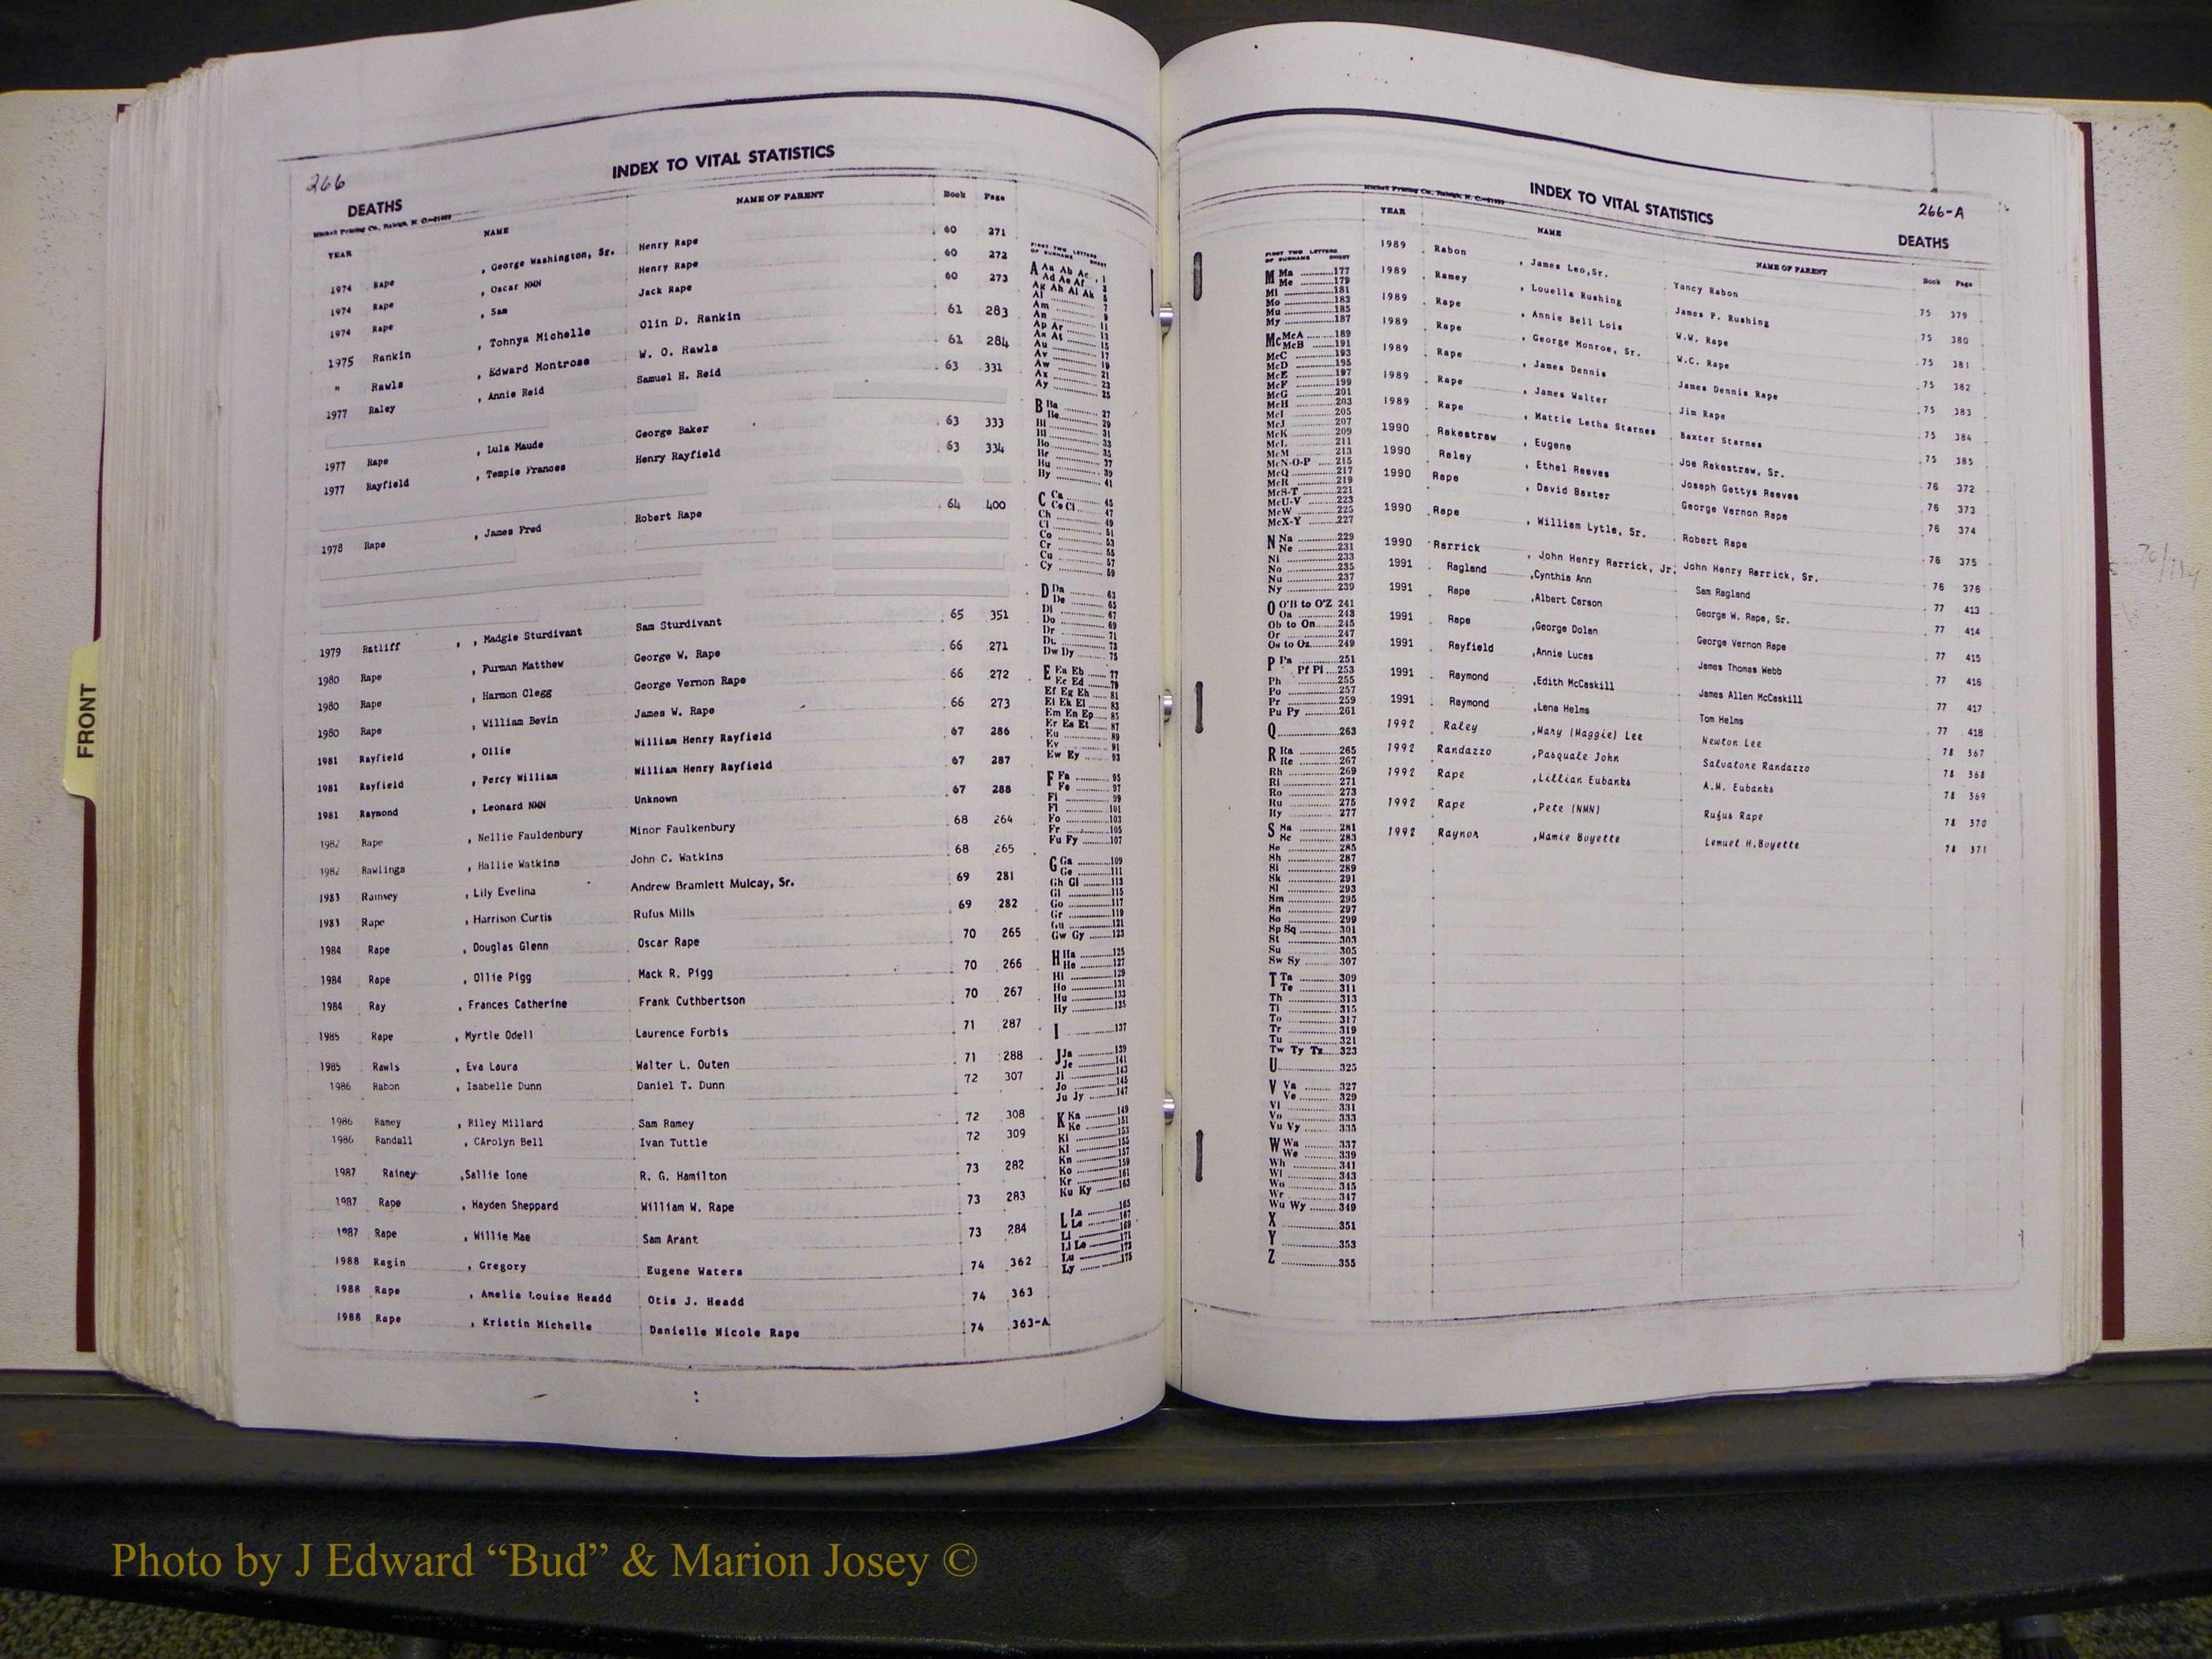 266
INDEX TO VITAL STATISTICS
DEATHS
Mitchell Printing Co., Raleigh, N. C.
YEAR NAME NAME OF PARENT Book Page
1974 Rape , George Washington, Sr. Henry Rape 60 271
1974 Rape , Oscar NMN Henry Rape 60 272
1974 Rape , Sam Jack Rape 60 273
1975 Rankin , Tohnya Michelle Olin D. Rankin 61 283
" Rawls , Edward Montrose W. O. Rawls 61 284
1977 Raley , Annie Reid Samuel H. Reid 63 331
1977 Rape , Lula Maude George Baker 63 333
1977 Rayfield , Tempie Frances Henry Rayfield 63 334
1978 Rape , James Fred Robert Rape 64 400
1979 Ratliff , , Madgie Sturdivant Sam Sturdivant 65 351
1980 Rape , Furman Matthew George W. Rape 66 271
1980 Rape , Harmon Clegg George Vernon Rape 66 272
1980 Rape , William Bevin James W. Rape 66 273
1981 Rayfield , Ollie William Henry Rayfield 67 286
1981 Rayfield , Percy William William Henry Rayfield 67 287
1981 Raymond , Leonard NMN Unknown 67 288
1982 Rape , Nellie Fauldenbury Minor Faulkenbury 68 264
1982 Rawlings , Hallie Watkins John C. Watkins 68 265
1983 Ramsey , Lily Evelina Andrew Bramlett Mulcay, Sr. 69 281
1983 Rape , Harrison Curtis Rufus Mills 69 282
1984 Rape , Douglas Glenn Oscar Rape 70 265
1984 Rape , Ollie Pigg Mack R. Pigg 70 266
1984 Ray , Frances Catherine Frank Cuthbertson 70 267
1985 Rape , Myrtle Odell Laurence Forbis 71 287
1985 Rawls , Eva Laura Walter L. Outen 71 288
1986 Rabon , Isabelle Dunn Daniel T. Dunn 72 307
1986 Ramey , Riley Millard Sam Ramey 72 308
1986 Randall , CArolyn Bell Ivan Tuttle 72 309
1987 Rainey ,Sallie Ione R. G. Hamilton 73 282
1987 Rape , Hayden Sheppard William W. Rape 73 283
1987 Rape , Willie Mae Sam Arant 73 284
1988 Ragin , Gregory Eugene Waters 74 362
1988 Rape , Amelia Louise Headd Otis J. Headd 74 363
1988 Rape , Kristin Michelle Danielle Nicole Rape 74 363-A
FIRST TWO LETTERS
OF SURNAME SHEET
A Aa Ab Ac 1
Ad Ae Af 3
Ag Ah Ai Ak 5
Al 7
Am 9
An
Ap Ar 11
As At 13
Au 15
Av 17
Aw 19
Ax
Ay 25
B Ba 27
Be 29
Bi 31
Bl 33
Bo 35
Br 37
Bu 39
By 41
C Ca 45
Ce Ci 47
Ch 49
Cl 51
Co 53
Cr 55
Cu 57
Cy 59
D Da 63
De 65
Di 67
Do 69
Dr 71
Du 73
Dw Dy 75
E Ea Eb 77
Ec Ed 79
Ef Eg Eh 81
Ei Ek El 83
Em En Ep 85
Er Es Et 87
Eu 89
Ev 91
Ew Ey 93
F Fa 95
Fe 97
Fi 99
Fl 101
Fo 103
Fr 105
Fu Fy 107
G Ga 109
Ge 111
Gh Gi 113
Gl 115
Go 117
Gr 119
Gu 121
Gw Gy 123
H Ha 125
He 127
Hi 129
Ho 131
Hu 133
Hy 135
I 137
J Ja 139
Je 141
Ji 143
Jo 145
Ju Jy 147
K Ka 149
Ke 151
Ki 153
Kl 155
Kn 157
Ko 159
Kr 161
Ku Ky 163
L La 165
Le 167
Li 169
Ll Lo 171
Lu 173
Ly 175
FRONT
INDEX TO VITAL STATISTICS
266-A
Mitchell Printing Co., Raleigh, N. C.
DEATHS
YEAR NAME NAME OF PARENT Book Page
1989 Rabon , James Leo,Sr. Yancy Rabon 75 379
1989 Ramey , Louella Rushing James P. Rushing 75 380
1989 Rape , Annie Bell Lois W.W. Rape 75 381
1989 Rape , George Monroe, Sr. W.C. Rape 75 382
1989 Rape , James Dennis James Dennis Rape 75 383
1989 Rape , James Walter Jim Rape 75 384
1989 Rape , Mattie Letha Starnes Baxter Starnes 75 385
1990 Rakestraw , Eugene Joe Rakestraw, Sr. 76 372
1990 Raley , Ethel Reeves Joseph Gettys Reeves 76 373
1990 Rape , David Baxter George Vernon Rape 76 374
1990 Rape , William Lytle, Sr. Robert Rape 76 375
1990 Rarrick , John Henry Rarrick, Jr. John Henry Rarrick, Sr. 76 376
1991 Ragland ,Cynthia Ann Sam Ragland 77 413
1991 Rape ,Albert Carson George W. Rape, Sr. 77 414
1991 Rape ,George Dolan George Vernon Rape 77 415
1991 Rayfield ,Annie Lucas James Thomas Webb 77 416
1991 Raymond ,Edith McCaskill James Allen McCaskill 77 417
1991 Raymond ,Lena Helms Tom Helms 77 418
1992 Raley ,Mary (Maggie) Lee Newton Lee 78 367
1992 Randazzo ,Pasquale John Salvatore Randazzo 78 368
1992 Rape ,Lillian Eubanks A.M. Eubanks 78 369
1992 Rape ,Pete (NMN) Rufus Rape 78 370
1992 Raynor ,Mamie Boyette Lemuel H.Boyette 78 371
FIRST TWO LETTERS
OF SURNAME SHEET
M Ma 177
Me 179
Mi 181
Mo 183
Mu 185
My 187
Mc McA 189
McB 191
McC 193
McD 195
McE 197
McF 199
McG 201
McH 203
McI 205
McJ 207
McK 209
McL 211
McM 213
McN-O-P 215
McQ 217
McR 219
McS-T 221
McU-V 223
McW 225
McX-Y 227
N Na 229
Ne 231
Ni 233
No 235
Nu 237
Ny 239
O O'B to O'Z 241
Oa 243
Ob to On 245
Or 247
Os to Oz 249
P Pa 251
Pf Pl 253
Ph 255
Po 257
Pr 259
Pu Py 261
Q 263
R Ra 265
Re 267
Rh 269
Ri 271
Ro 273
Ru 275
Ry 277
S Sa 281
Sc 283
Se 285
Sh 287
Si 289
Sk 291
Sl 293
Sm 295
Sn 297
So 299
Sp Sq 301
St 303
Su 305
Sw Sy 307
T Ta 309
Te 311
Th 313
Ti 315
To 317
Tr 319
Tu 321
Tw Ty Tz 323
U 325
V Va 327
Ve 329
Vi 331
Vo 333
Vu Vy 335
W Wa 337
We 339
Wh 341
Wi 343
Wo 345
Wr 347
Wu Wy 349
X 351
Y 353
Z 355
Photo by J Edward “Bud” & Marion Josey ©